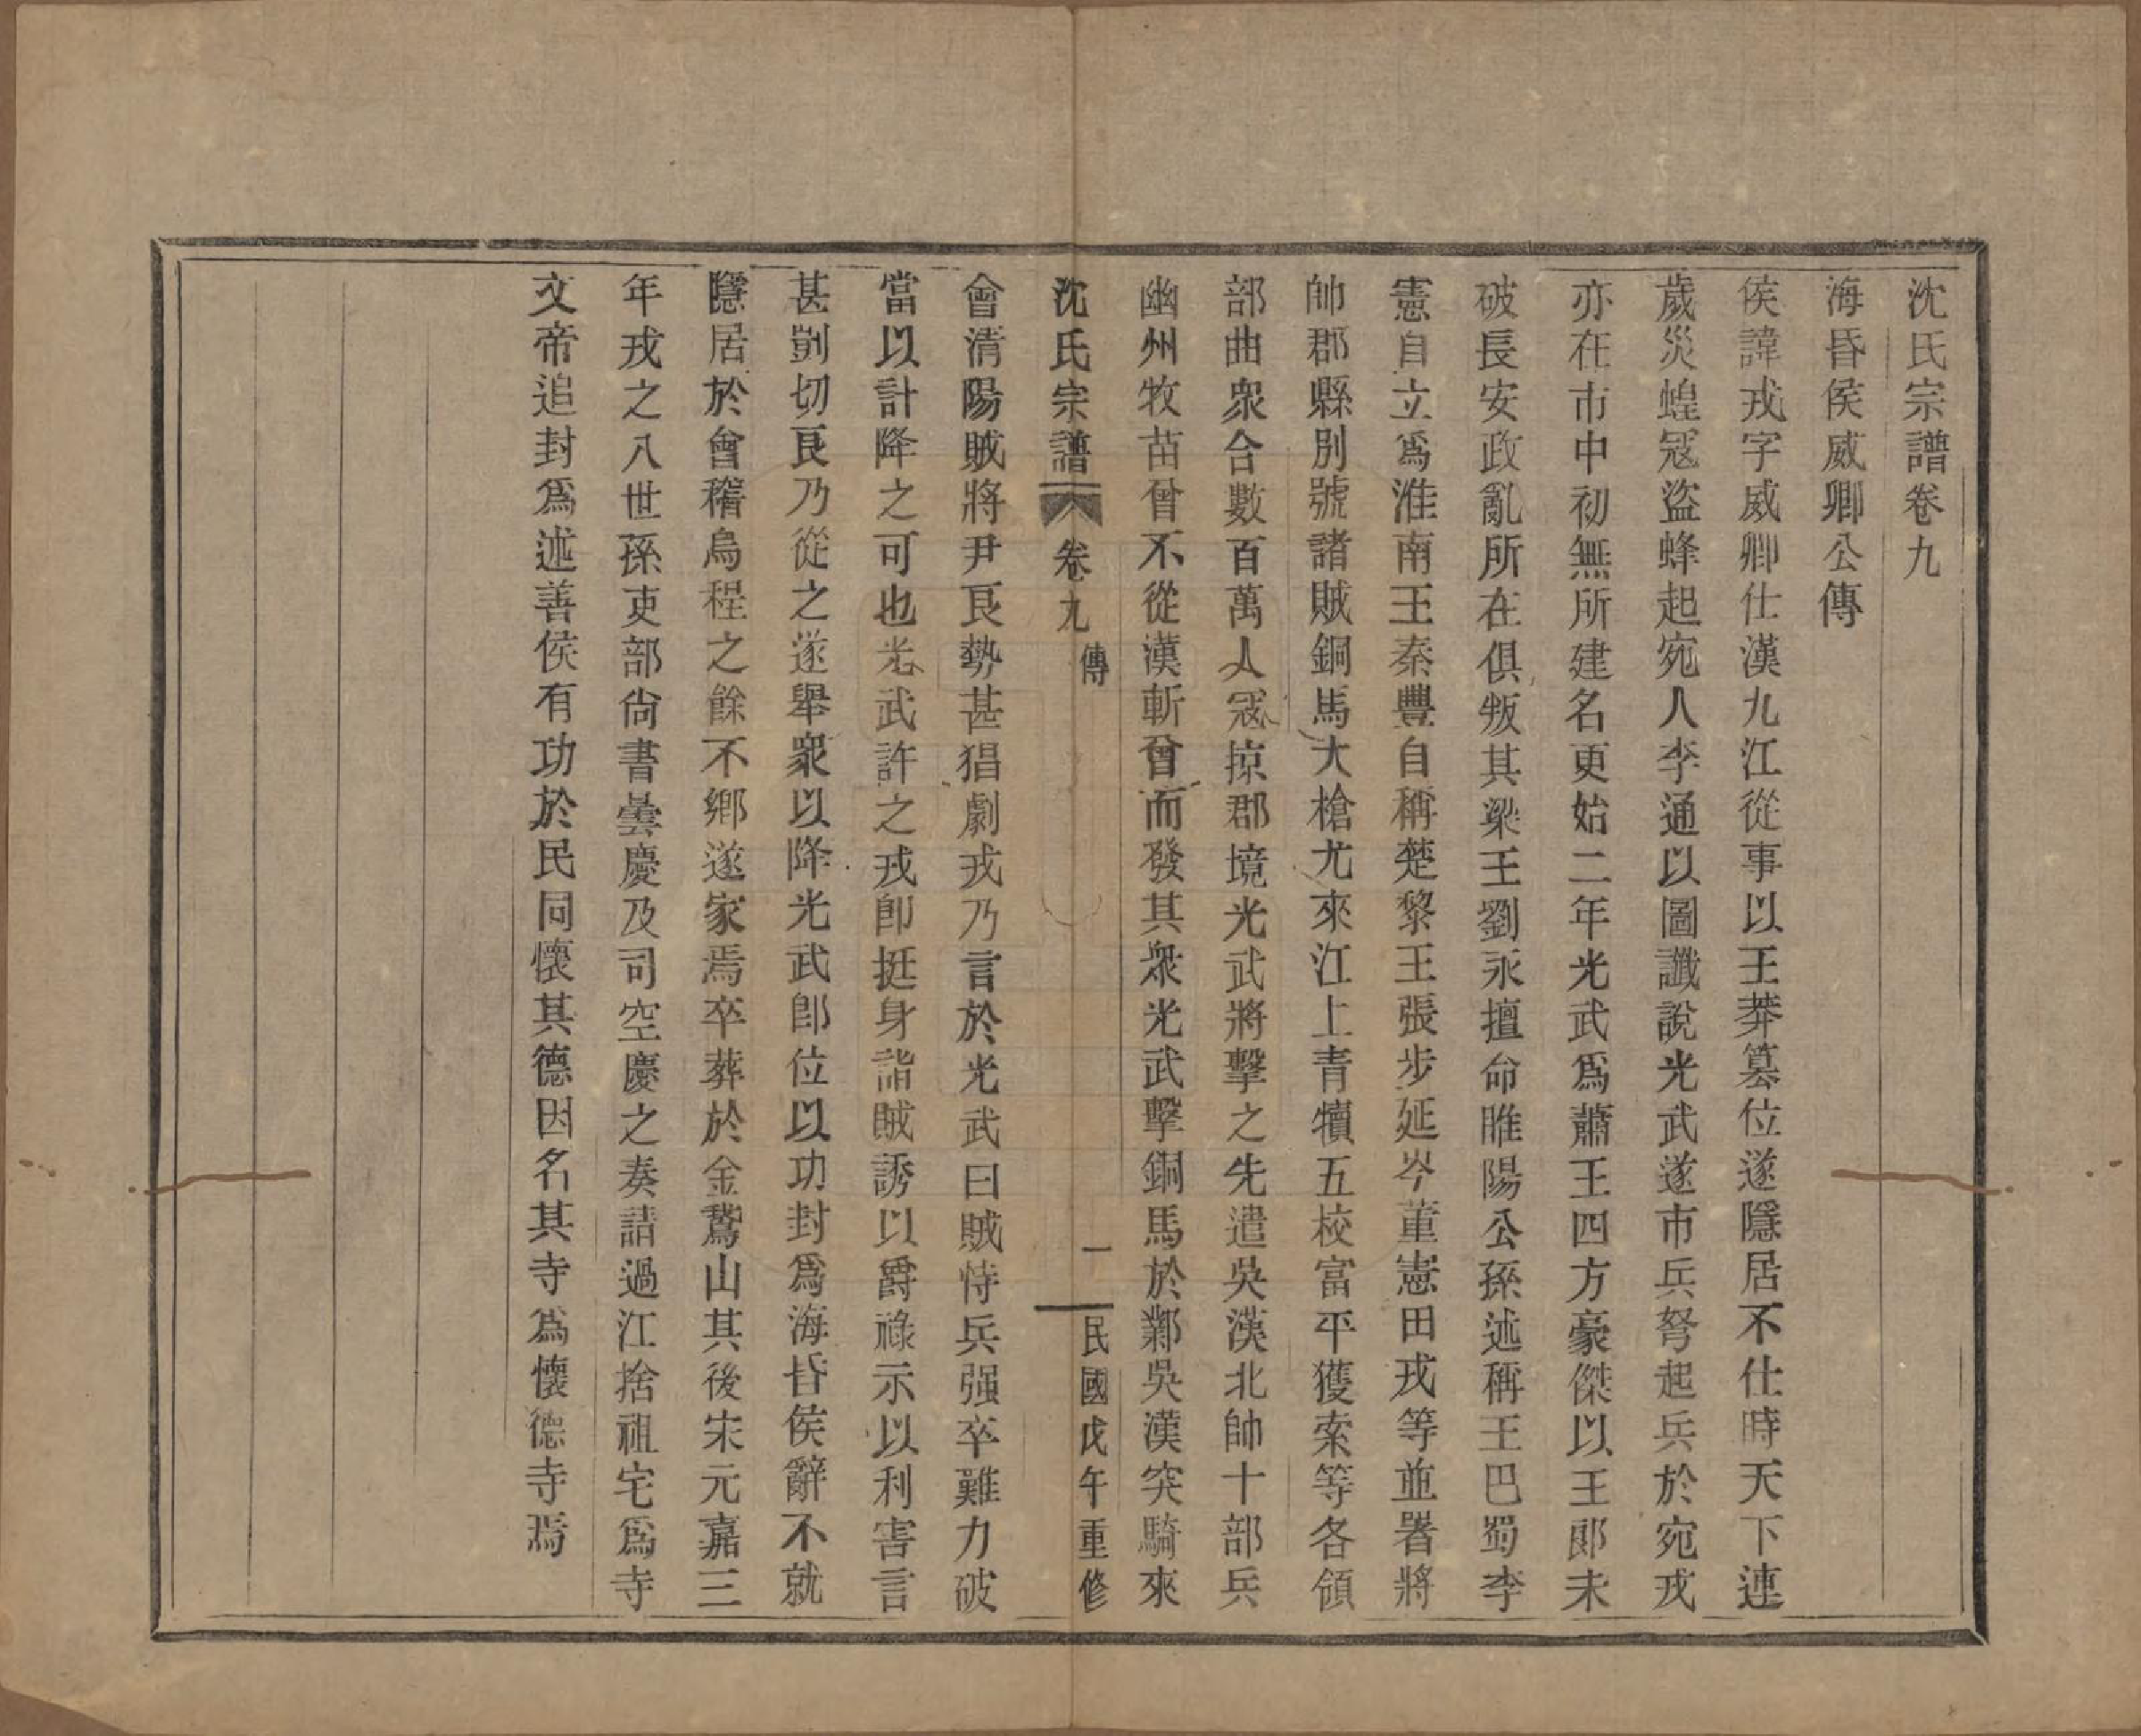 沈氏宗譜卷九
海昏侯威卿公傳
侯諱戎字威卿仕漢九江從事以王莽篡位遂隱居不仕時天下連
歲災蝗冦盜蜂起宛人李通以圖讖說光武遂市兵弩起兵於宛戎
亦在市中初無所建名更始二年光武爲蕭王四方豪傑以王郎未
破長安政亂所在俱叛其梁王劉永擅命睢陽公孫述稱王巴蜀李
憲自立爲淮南王秦豐自稱楚黎王張步延岑董憲田戎等並署將
帥郡縣別號諸賊銅馬大槍尤來江上青犢五校富平獲索等各領
部曲衆合數百萬人冦掠郡境光武將擊之先遣吳漢北帥十部兵
幽州牧苗曾不從漢斬曾而發其衆光武擊銅馬於鄴吳漢突騎來
沈氏宗譜
卷九
傳
一
民國戊午重修
會清陽賊將尹良勢甚猖劇戎乃言於光武曰賊恃兵强卒難力破
當以計降之可也光武許之戎卽挺身詣賊誘以爵祿示以利害言
甚剴切良乃從之遂舉衆以降光武卽位以功封爲海昏侯辭不就
隱居於會稽烏程之餘不鄉遂家焉卒葬於金鵞山其後宋元嘉三
年戎之八世孫吏部尙書曇慶及司空慶之奏請過江捨祖宅爲寺
文帝追封爲述善侯有功於民同懷其德因名其寺爲懷德寺焉